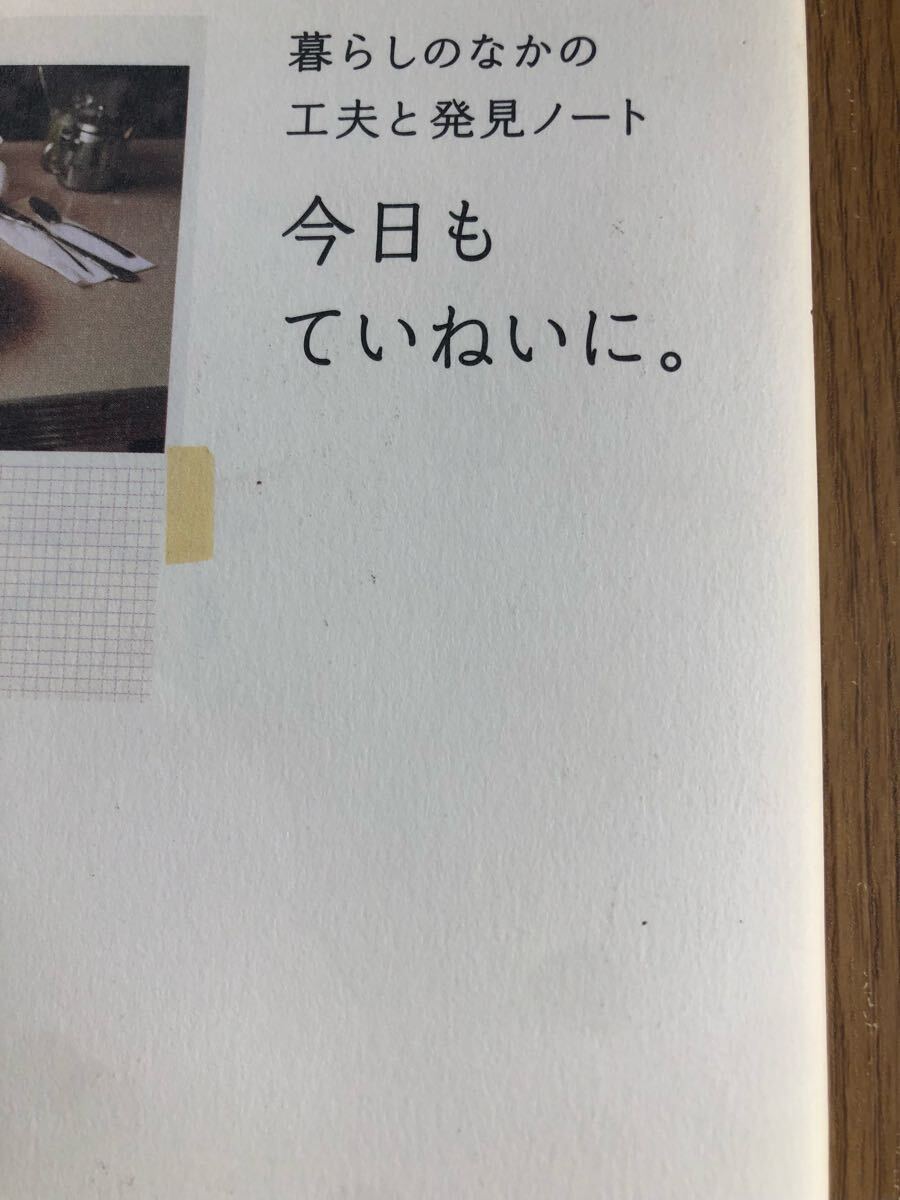 暮らしのなかの
工夫と発見ノート
今日も
ていねいに。